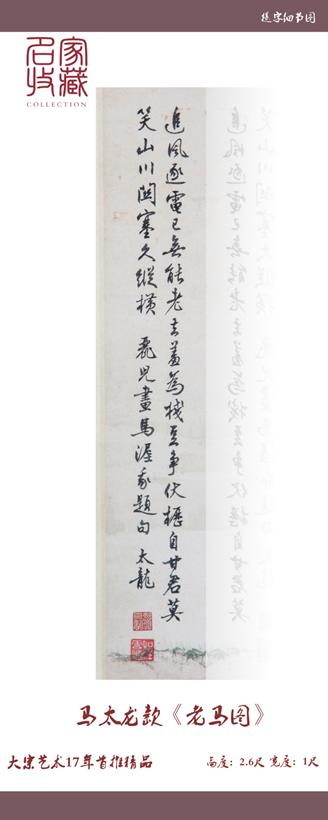 题字细节图
名家
收藏
COLLECTION
追风逐電已無能老去羞為棧豆爭伏櫪自甘君莫
笑山川関塞久縱橫 麗児畫馬渥丞題句 太龍
马太龙款《老马图》
大宗艺术17年首推精品
高度：2.6尺 宽度：1尺